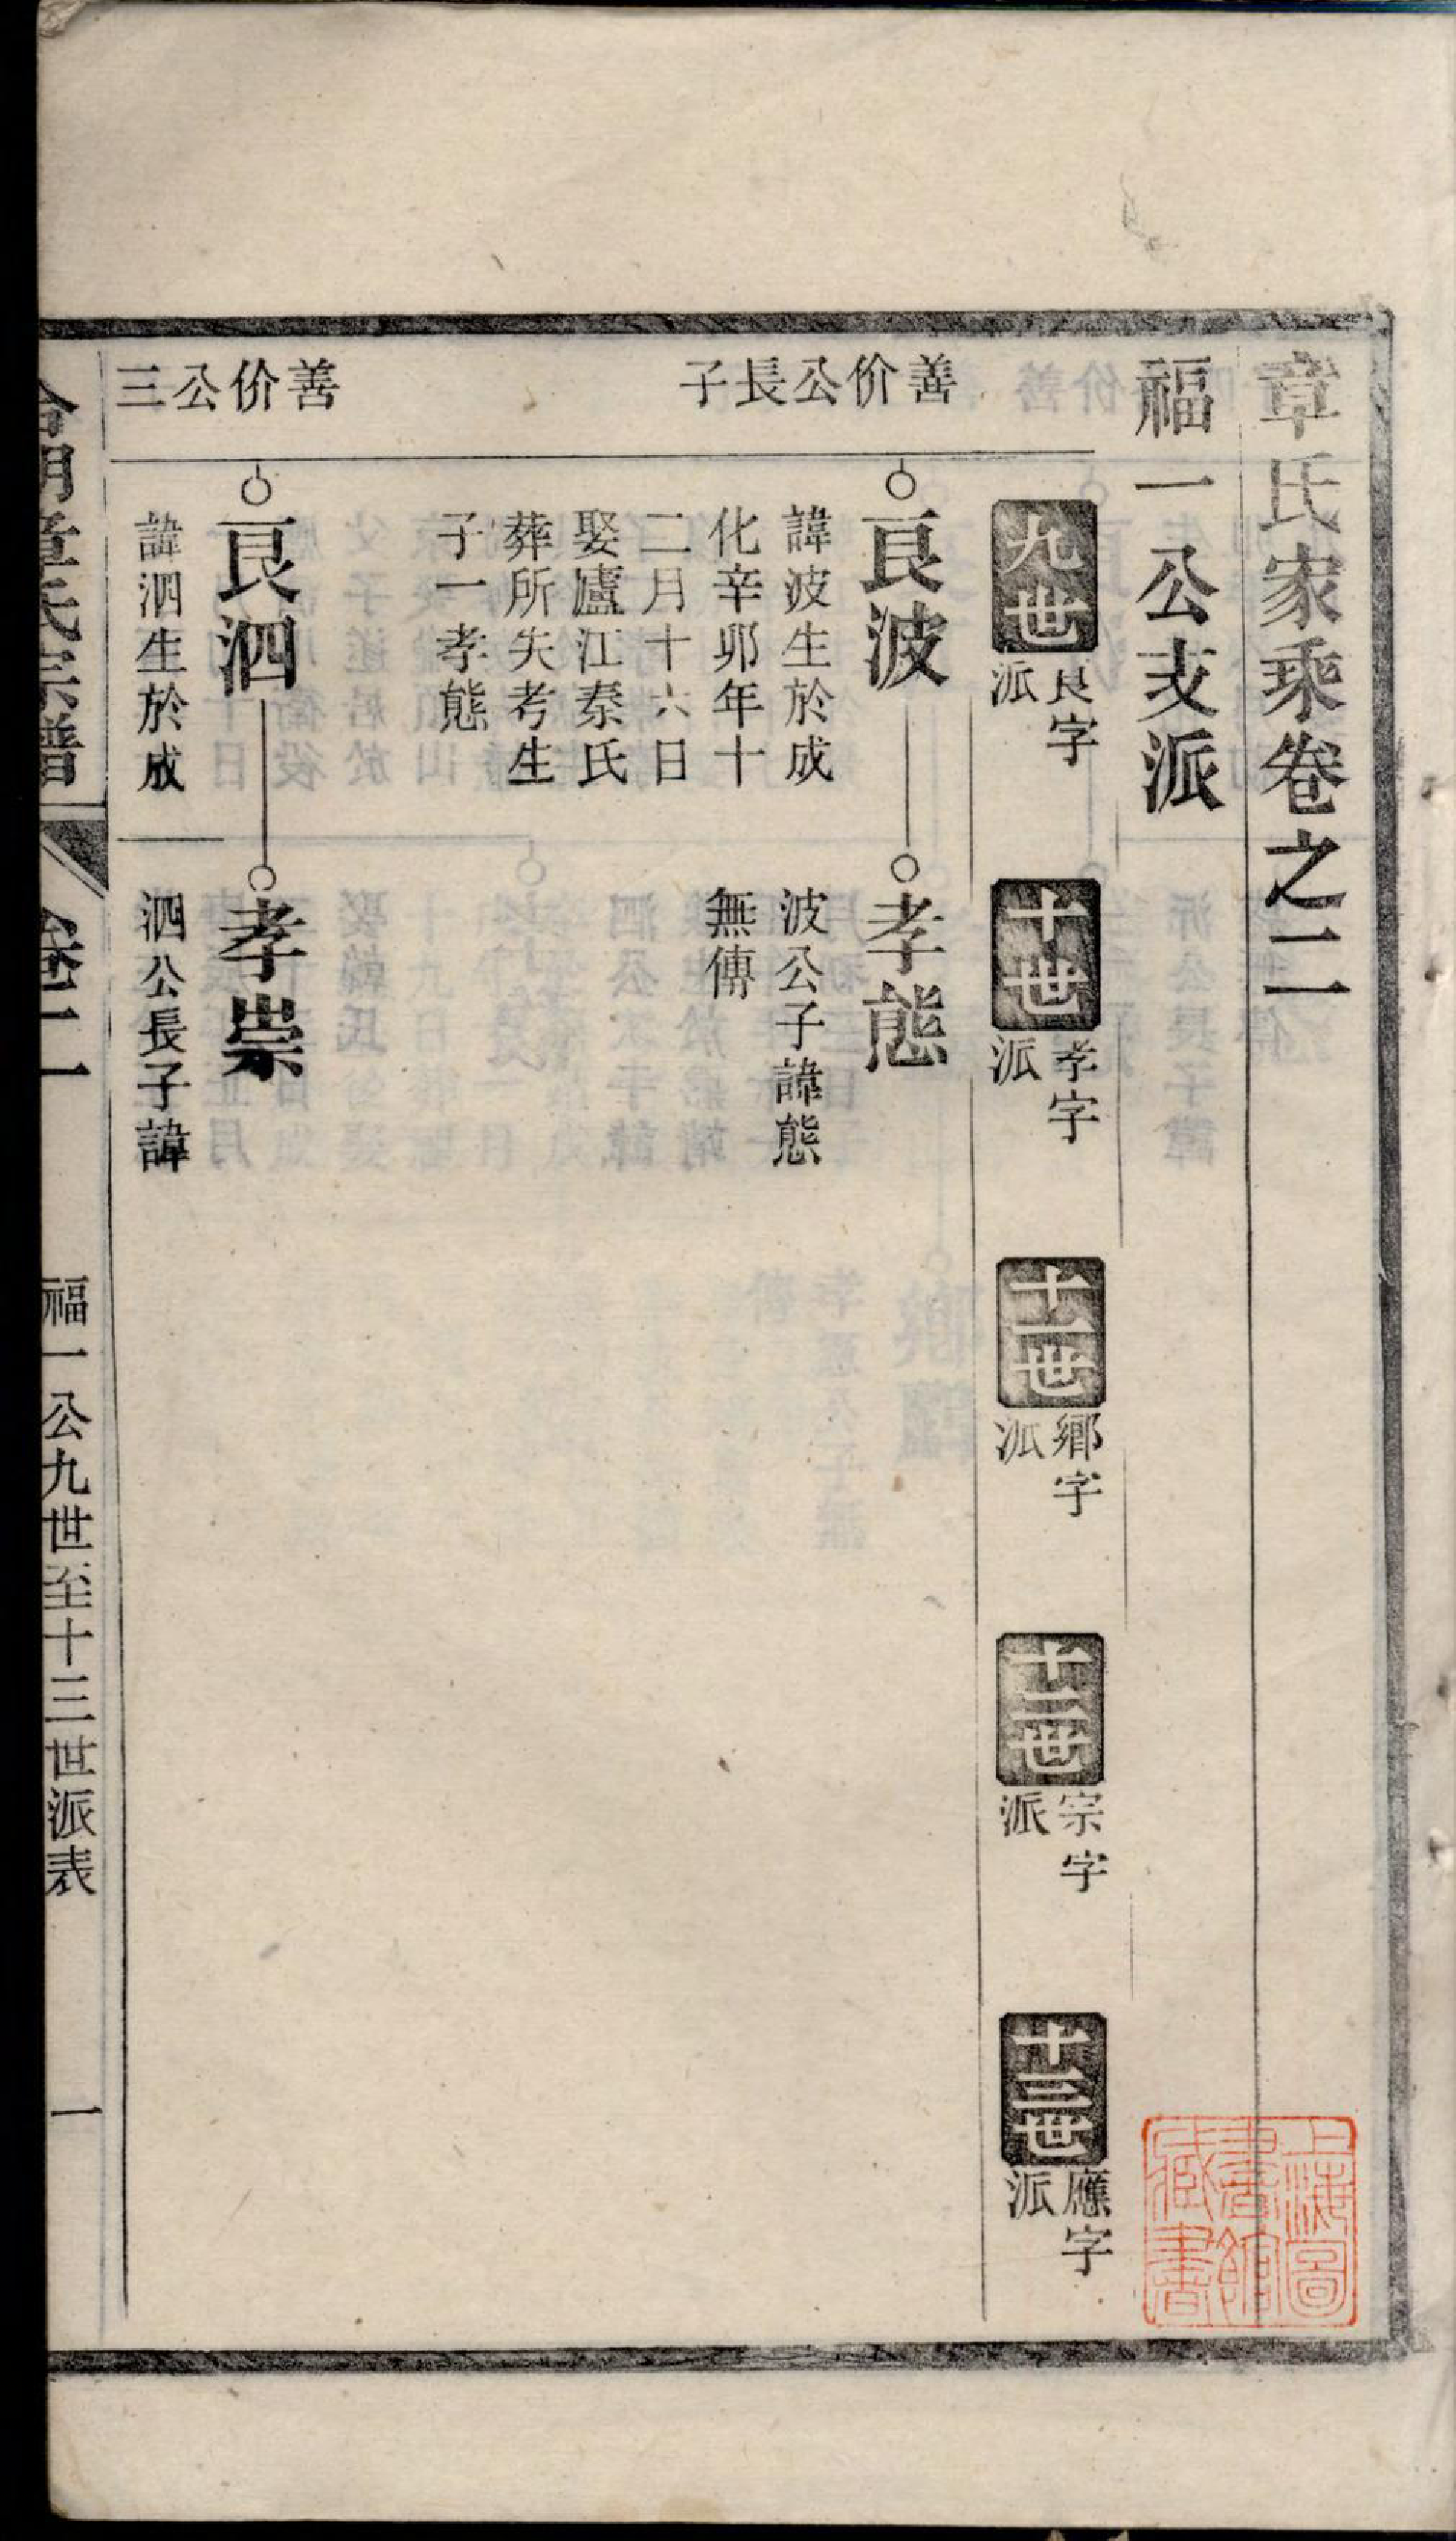 章氏家乘卷之二
福一公支派
九世
良字
派
十世
孝字
派
十一世
鄉字
派
十二世
宗字
派
十三世
應字
派
善价公長子
良波
諱波生於成
化辛卯年十
二月十六日
娶廬江秦氏
葬所失考生
子一孝態
孝態
波公子諱態
無傳
善价公三
良泗
諱泗生於成
孝崇
泗公長子諱
章氏宗譜
卷二
福一公九世至十三世派表
一
上海圖
書館
藏書